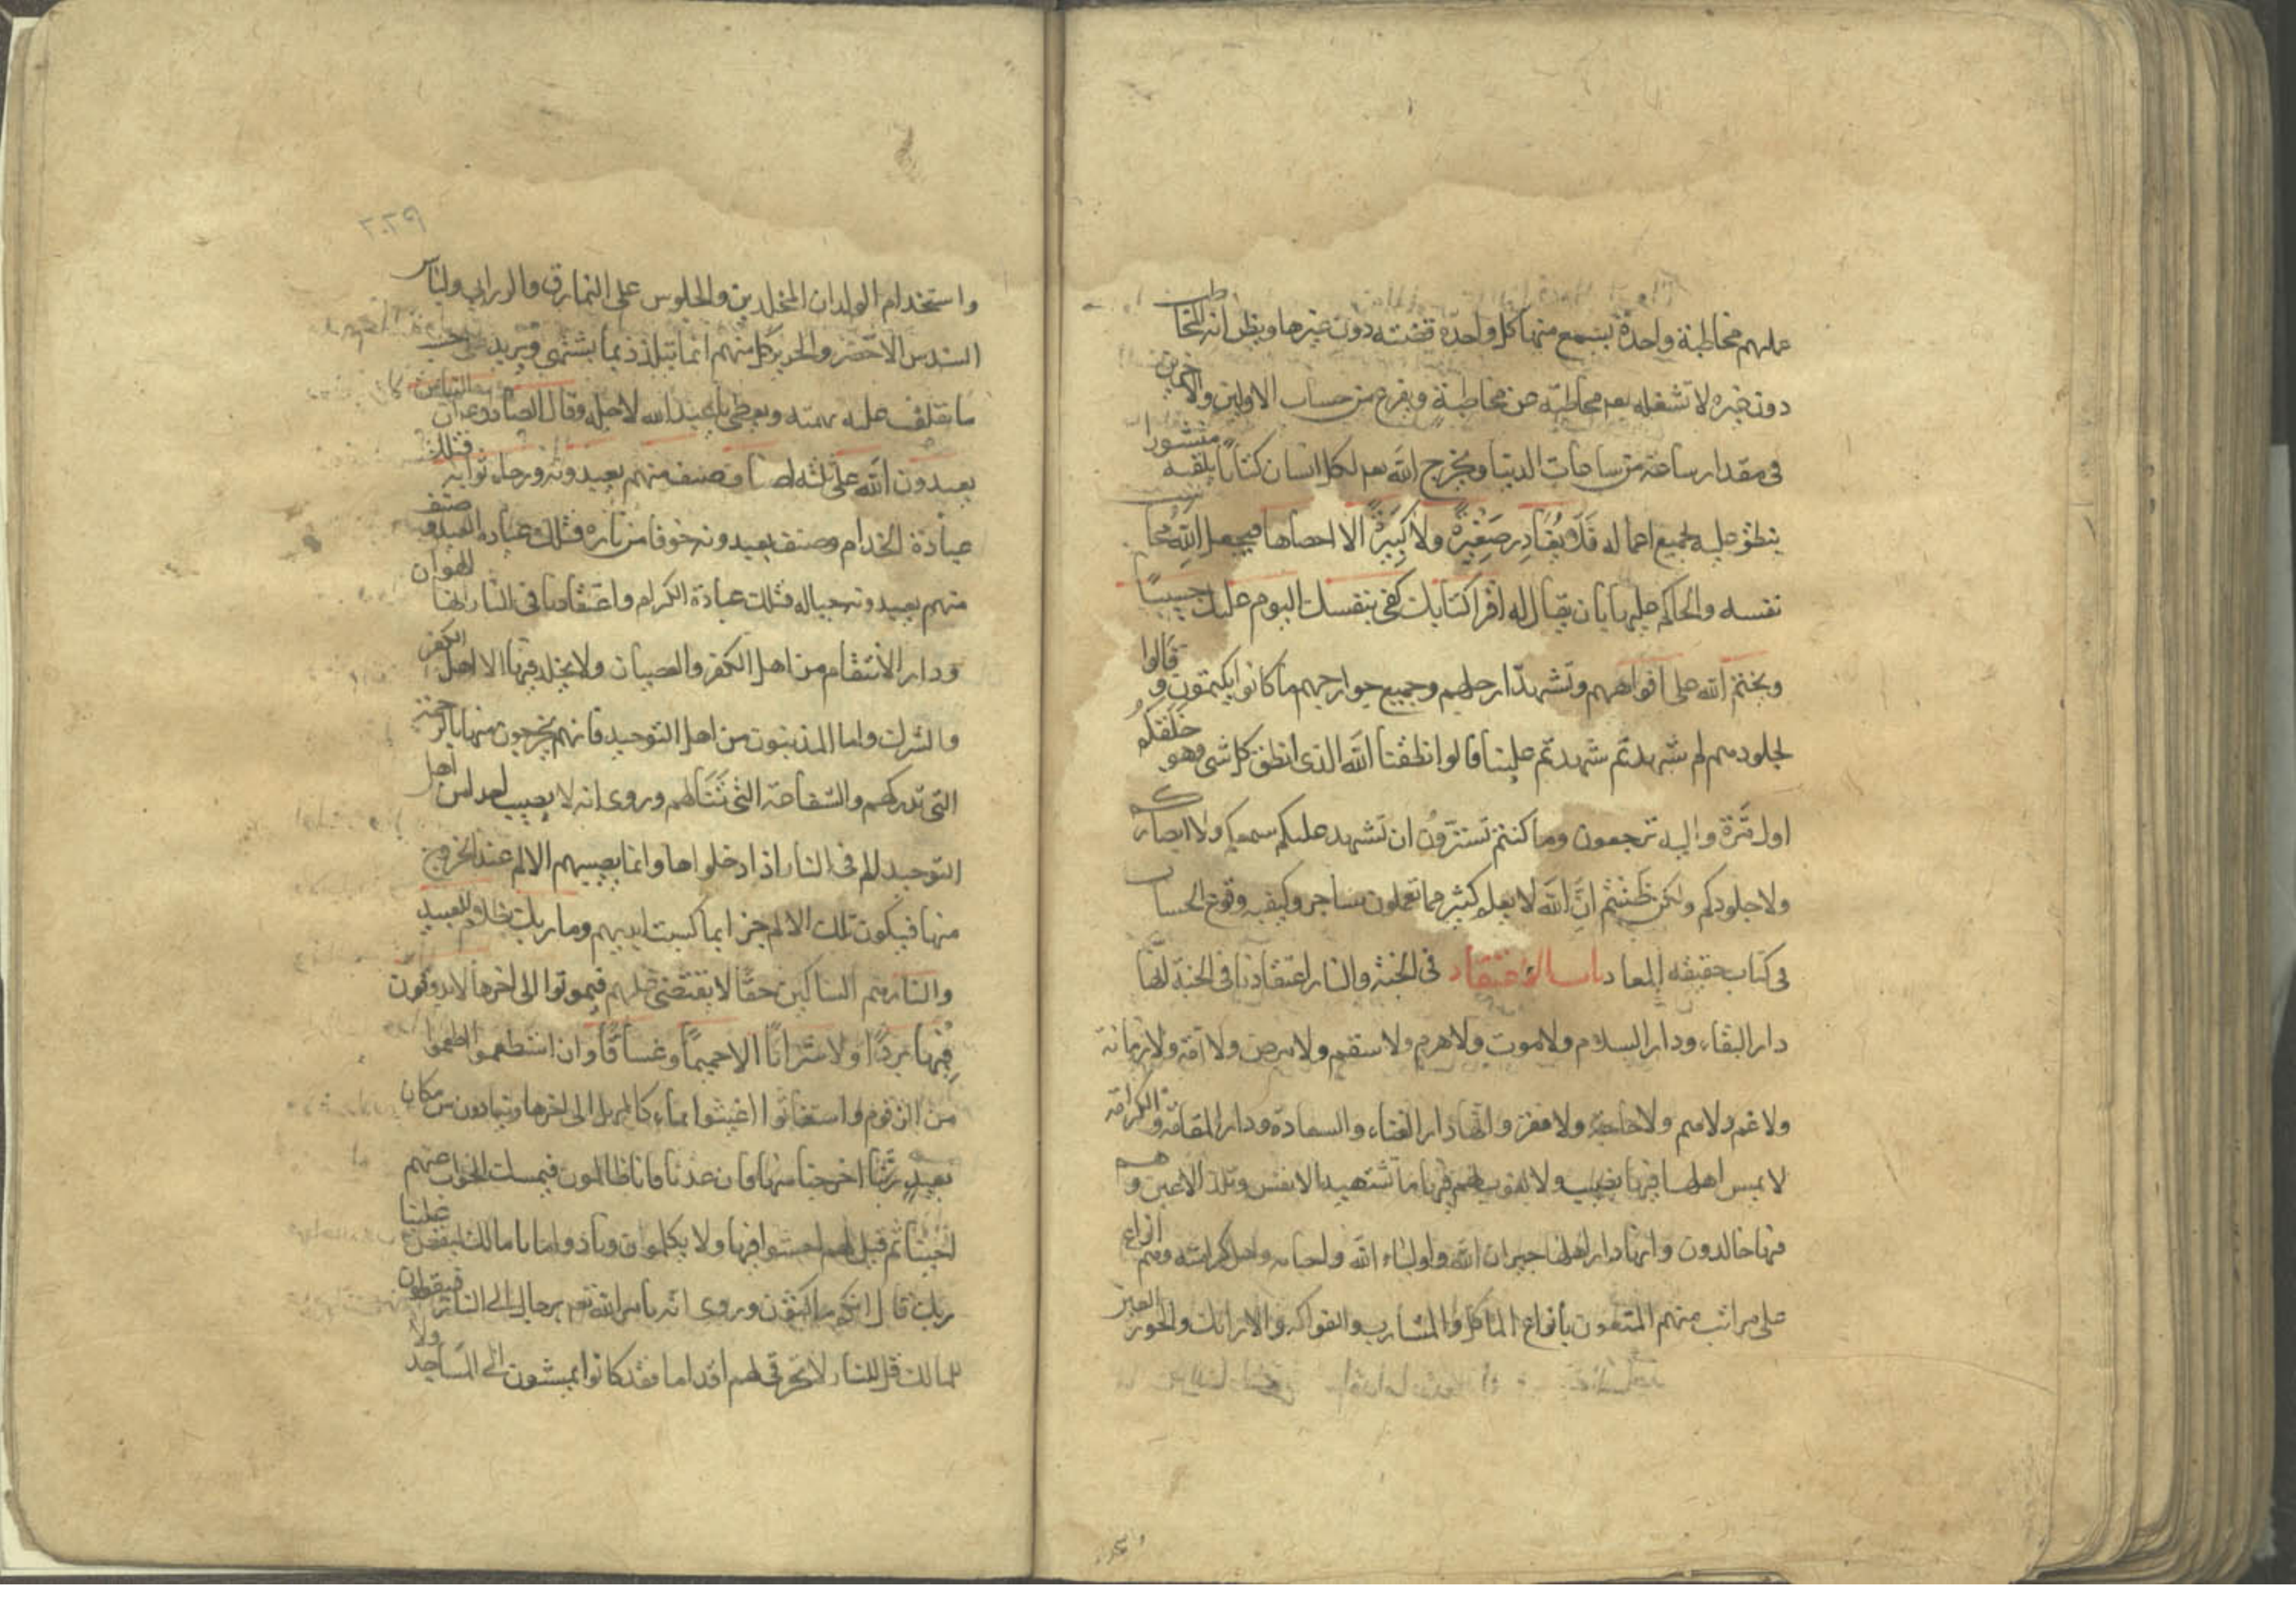 عملهم مخاطبة واحدة يسمع منها كل واحدة قضيته دون غيرها ويظن انه المخاطب
دون غيره لا تشغله تعم مخاطبة عن مخاطبة ويفرغ من حساب الاولين والاخرين
فى مقدار ساعة من ساعات الدنيا ويخرج الله تعم لكل انسان كتابا يلقيه منشورا
ينطق عليه بجميع اعماله فلا يغادر صغيرة ولا كبيرة الا احصاها فيجعل الله محا
نفسه والحاكم عليها بان يقال له اقرا كتابك كفى بنفسك اليوم عليك حسيبا
ويختم الله على افواههم وتشهد ارجلهم وجميع جوارحهم ما كانوا يكتمون وقالوا
لجلودهم لم شهدتم شهدتم علينا قالوا انطقنا الله الذى انطق كل شى وهو خلقكم
اول مرة واليه ترجعون وما كنتم تستترون ان تشهد عليكم سمعكم ولا ابصاركم
ولا جلودكم ولكن ظننتم ان الله لا يعلم كثيرا مما تعملون ساجر وكيفيه وقوع الحساب
فى كتاب حقيقه المعاد باب الاعتقاد فى الجنة والنار اعتقادنا فى الجنة انها
دار البقاء ودار السلام ولا موت ولا هرم ولا سقم ولا مرض ولا آفة ولا زمانة
ولا غم ولا هم ولا حاجة ولا فقر وانها دار الغناء والسعادة ودار المقامة والكرامة
لا يمس اهلها فيها نصب ولا لغوب لهم فيها ما تشتهيه الانفس وتلذ الاعين وهم
فيها خالدون وانها دار اهلها جيران الله واولياء الله واحباءه واهل كرامته وهم انواع
على مراتب منهم المتنعمون بانواع الماكل والمشارب والفواكه والارائك والحور العين
٢٠٢٩
واستخدام الولدان المخلدين والجلوس على النمارق والزرابى ولباس
السندس الاخضر والحرير كل منهم انما يتلذذ بما يشتهى ويريد على حسب
ما تعلقت عليه همته ويعطى ما عبد الله لاجله وقال الصادق ع ان الناس
يعبدون الله على ثلثه اصناف صنف منهم يعبدونه ورجاء ثوابه فتلك
عبادة الخدام وصنف يعبدونه خوفا من ناره فتلك عبادة العبيد وصنف
منهم يعبدونه حبا له فتلك عبادة الكرام واعتقادنا فى النار انها دار الهوان
ودار الانتقام من اهل الكفر والعصيان ولا يخلد فيها الا اهل الكفر
والشرك واما المذنبون من اهل التوحيد فانهم يخرجون منها بالرحمة
التى تدركهم والشفاعة التى تنالهم وروى انه لا يصيب احدا من اهل
التوحيد الم فى النار اذا دخلواها وانما يصيبهم الالم عند الخروج
منها فيكون تلك الالم جزا بما كسبت ايديهم وما ربك بظلام للعبيد
والنارهم المساكين حقا لا يقتضى عليهم فيموتوا الى اخرها لا يذوقون
فيها بردا ولا شرابا الا حميما وغساقا وان استطعموا اطعموا
من الزقوم واستغاثوا اغيثوا بماء كالمهل الى اخرها وينادون من مكان
بعيد ربنا اخرجنا منها فان عدنا فانا ظالمون فيمسك الجواب عنهم
احيانا ثم قيل لهم اخسئوا فيها ولا يكلمون ونادوا يا مالك ليقض علينا
ربك قال انكم ماكثون وروى انه يامر الله تعم برجال الى النار فيقولون
لمالك قل للنار لا تحرقى لهم اقداما فقد كانوا يمشون الى المساجد ولا